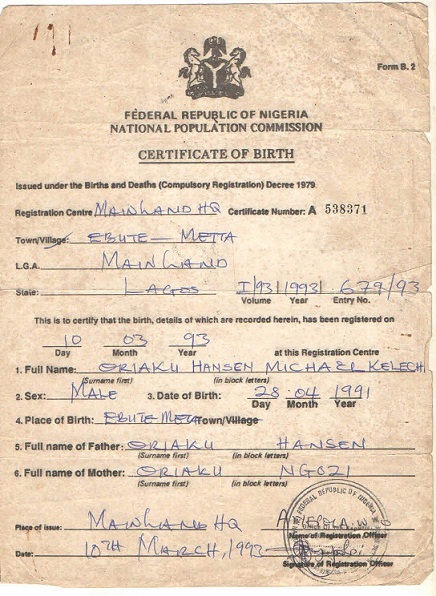 Form B. 2
FEDERAL REPUBLIC OF NIGERIA
NATIONAL POPULATION COMMISSION
CERTIFICATE OF BIRTH
Issued under the Births and Deaths (Compulsory Registration) Decree 1979
Registration Centre MAINLAND HQ Certificate Number: A 538371
Town/Village: EBUTE — METTA
L.G.A. MAINLAND
State: LAGOS I/93 1993 679/93
Volume Year Entry No.
This is to certify that the birth, details of which are recorded herein, has been registered on
10 03 93
Day Month Year at this Registration Centre
1. Full Name: ORIAKU HANSEN MICHAEL KELECH
(Surname first) (in block letters)
2. Sex: MALE 3. Date of Birth: 28 04 1991
Day Month Year
4. Place of Birth: EBUTE META Town/Village
5. Full name of Father: ORIAKU HANSEN
(Surname first) (in block letters)
6. Full name of Mother: ORIAKU NGOZI
(Surname first) (in block letters)
Place of issue: MAINLAND HQ
Name of Registration Officer
Date: 10TH MARCH, 1993
Signature of Registration Officer